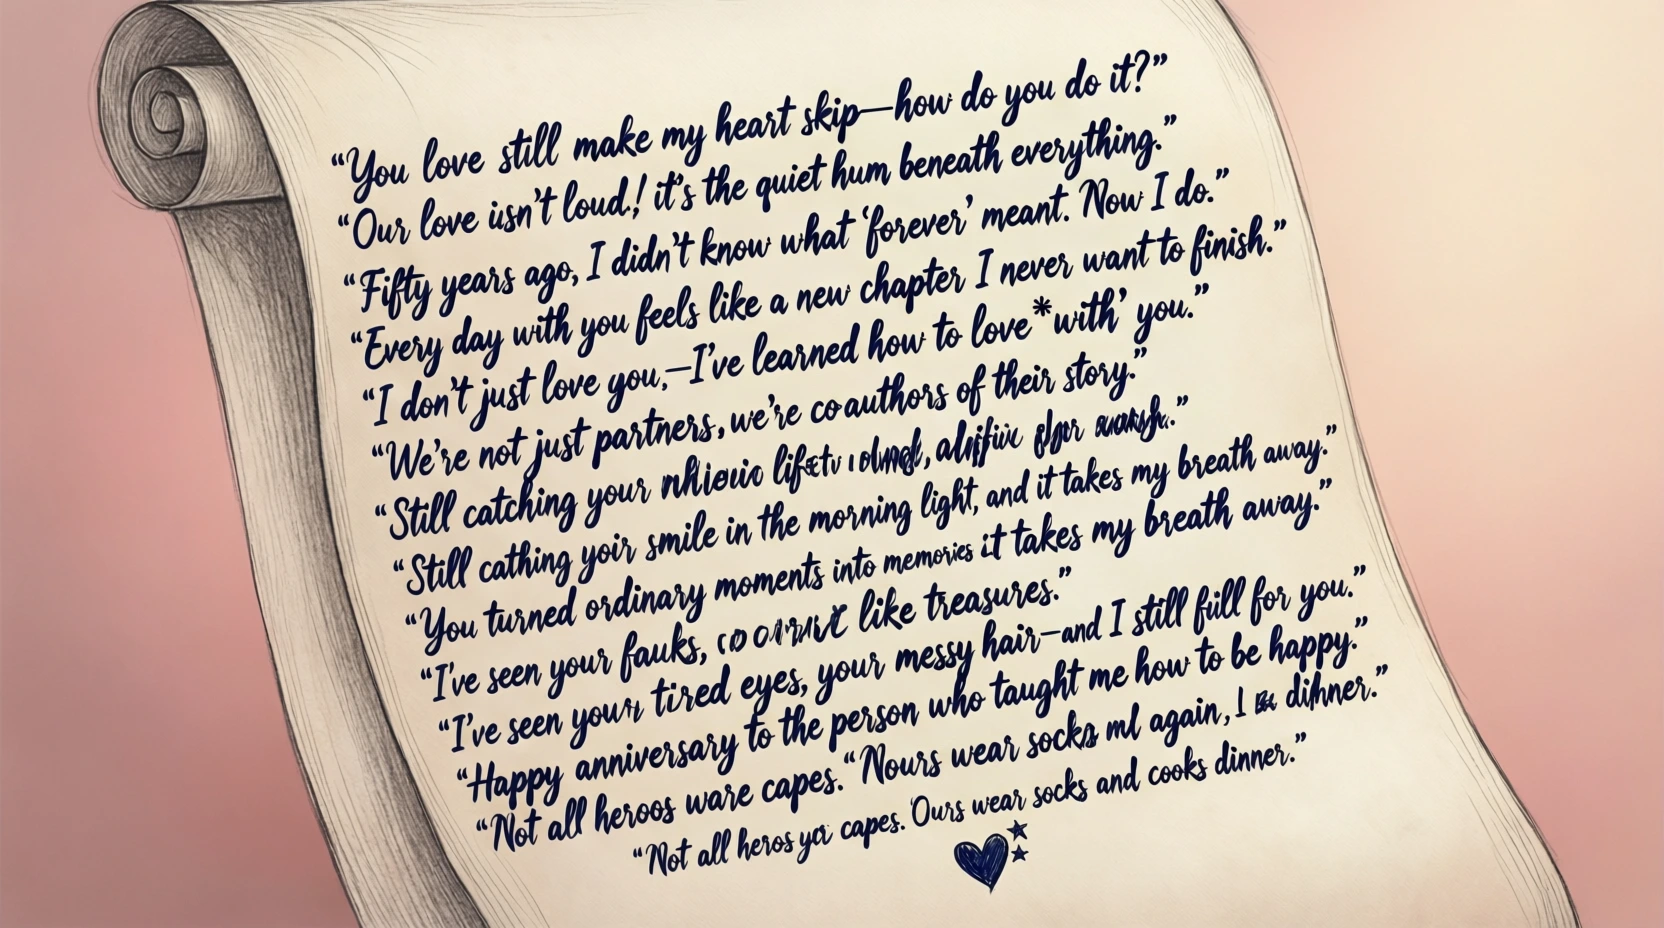 “You love still make my heart skip—how do you do it?”
“Our love iisn't loud.! it's the quiet hum beneath everything.”
“Fifty years ago, I didn't know what ‘forever’ meant. Now I do.”
“Every day with you feels like a new chapter I never want to finish.”
“I don't just love you,—I've learned how to love*with’ you.”
“We're not just partners, we're coauthors of their story.”
“Still catching your
“Still cathing yoir smile in the morning light, and it takes my breath away.”
“You turned ordinary moments into memories it takes my breath away.”
“I've seen your fauks, like treasures.”
“I've seen your tired eyes, your messy hair—and I still fiill for you.”
“Happy anniversary to the person who taught me how to be happy.”
“Not all heroos ware capes. “Nours wear socks again, I dihner.”
“Not all heros capes. Ours wear socks and cooks dinner.”